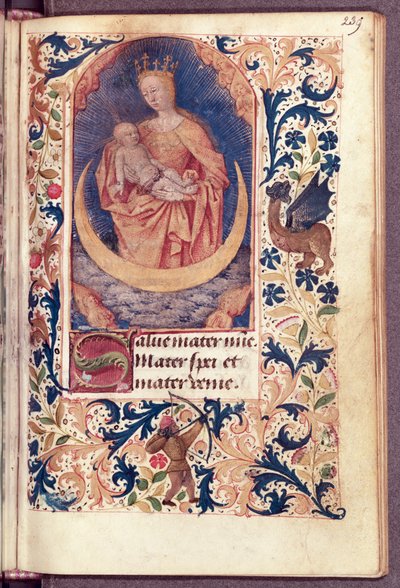 239
Salue mater mie.
Mater spei et
mater venie.